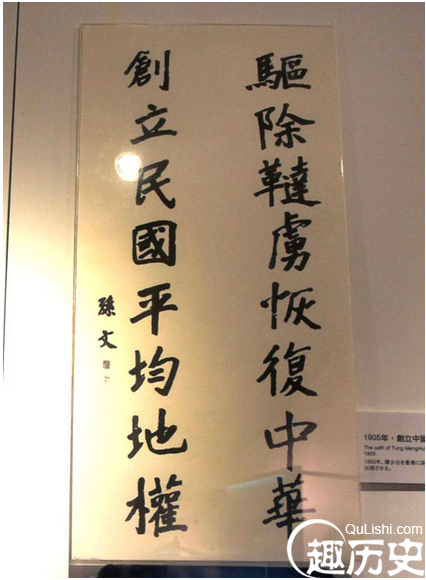 驅除韃虜恢復中華
創立民國平均地權
孫文
1905年・創立中國
The oath of Tung MengHu
1905.
QuLishi.com
趣历史